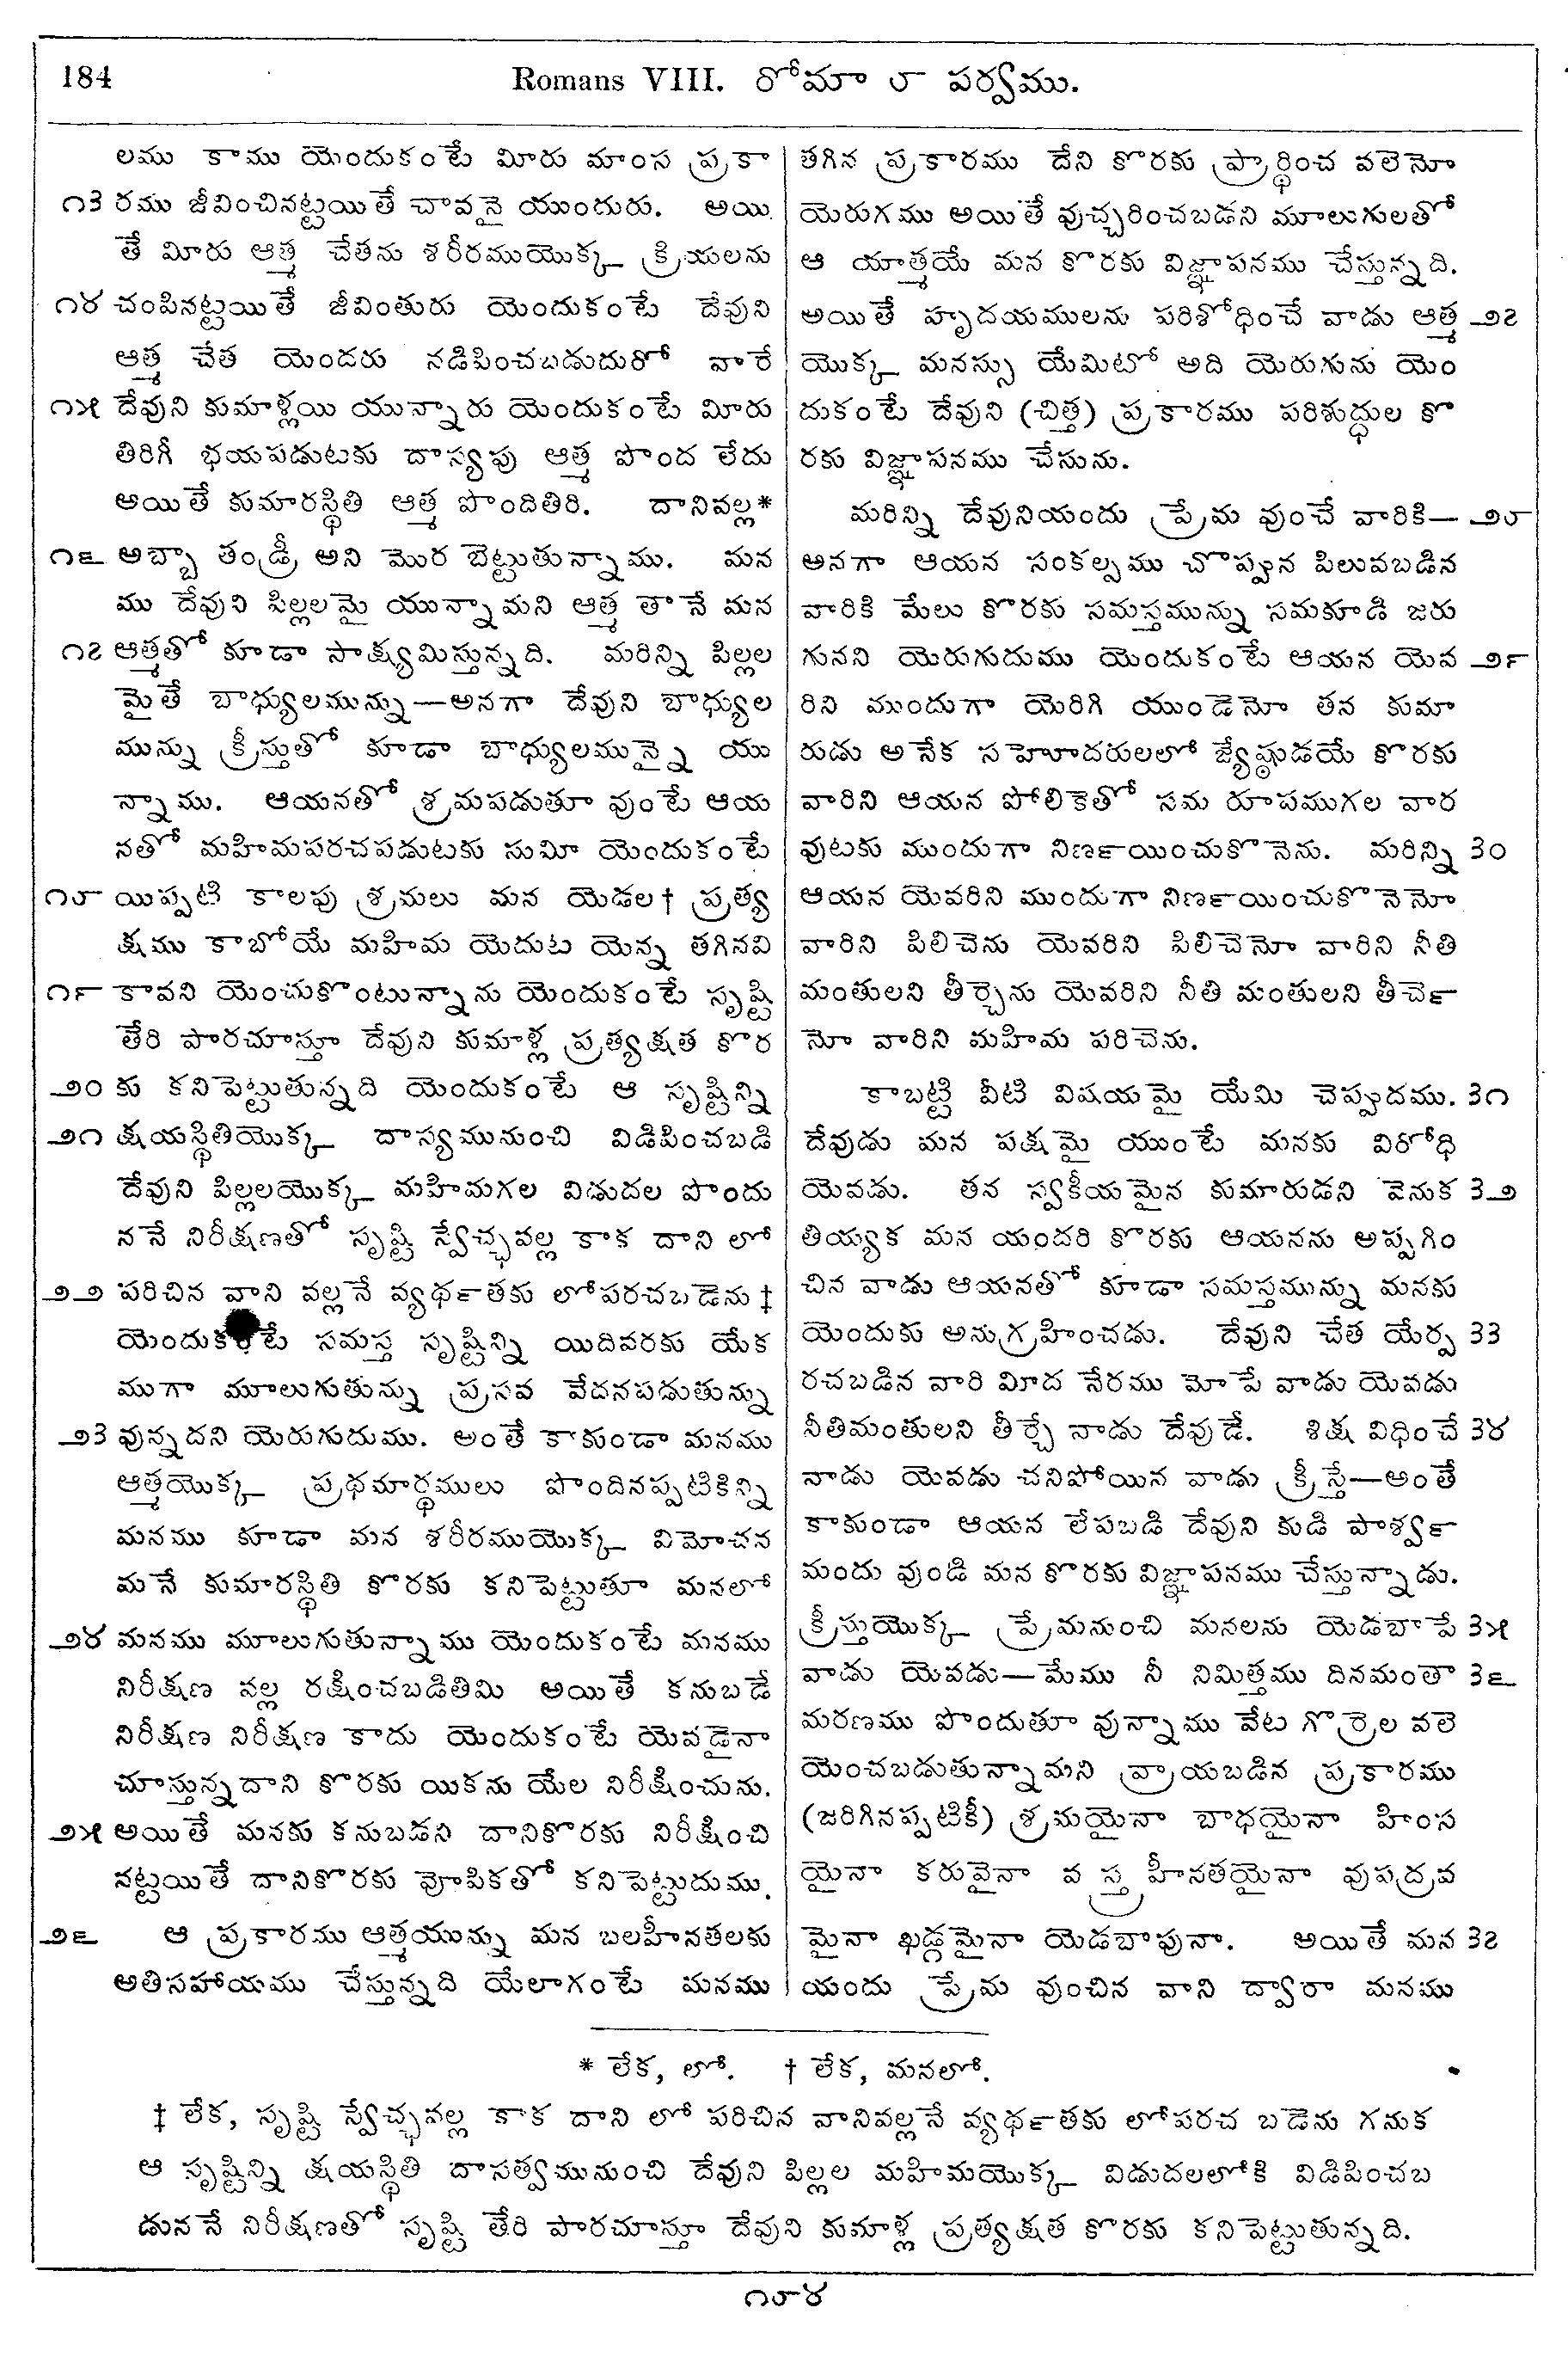 184
Romans VIII. రోమా ౮ పర్వము.
లము కాము యెందుకంటే మీరు మాంస ప్రకా
౧౩ రము జీవించినట్టయితే చావనై యుందురు. అయి
తే మీరు ఆత్మ చేతను శరీరముయొక్క క్రియలను
౧౪ చంపినట్టయితే జీవింతురు యెందుకంటే దేవుని
ఆత్మ చేత యెందరు నడిపించబడుదురో వారే
౧౫ దేవుని కుమాళ్లయి యున్నారు యెందుకంటే మీరు
తిరిగీ భయపడుటకు దాస్యపు ఆత్మ పొంద లేదు
అయితే కుమారస్థితి ఆత్మ పొందితిరి. దానివల్ల*
౧౬ అబ్బా తండ్రీ అని మొర బెట్టుతున్నాము. మన
ము దేవుని పిల్లలమై యున్నామని ఆత్మ తానే మన
౧౭ ఆత్మతో కూడా సాక్ష్యమిస్తున్నది. మరిన్ని పిల్లల
మైతే బాధ్యులమున్ను—అనగా దేవుని బాధ్యుల
మున్ను క్రీస్తుతో కూడా బాధ్యులమున్నై యు
న్నాము. ఆయనతో శ్రమపడుతూ వుంటే ఆయ
నతో మహిమపరచపడుటకు సుమీ యెందుకంటే
౧౮ యిప్పటి కాలపు శ్రమలు మన యెడల† ప్రత్య
క్షము కాబోయే మహిమ యెదుట యెన్న తగినవి
౧౯ కావని యెంచుకొంటున్నాను యెందుకంటే సృష్టి
తేరి పారచూస్తూ దేవుని కుమాళ్ల ప్రత్యక్షత కొర
౨౦ కు కనిపెట్టుతున్నది యెందుకంటే ఆ సృష్టిన్ని
౨౧ క్షయస్థితియొక్క దాస్యమునుంచి విడిపించబడి
దేవుని పిల్లలయొక్క మహిమగల విడుదల పొందు
ననే నిరీక్షణతో సృష్టి స్వేచ్ఛవల్ల కాక దాని లో
౨౨ పరిచిన వాని వల్లనే వ్యథ౯తకు లోపరచబడెను ‡
యెందుకంటే సమస్త సృష్టిన్ని యిదివరకు యేక
ముగా మూలుగుతున్ను ప్రసవ వేదనపడుతున్ను
౨౩ వున్నదని యెరుగుదుము. అంతే కాకుండా మనము
ఆత్మయొక్క ప్రథమార్థములు పొందినప్పటికిన్ని
మనము కూడా మన శరీరముయొక్క విమోచన
మనే కుమారస్థితి కొరకు కనిపెట్టుతూ మనలో
౨౪ మనము మూలుగుతున్నాము యెందుకంటే మనము
నిరీక్షణ వల్ల రక్షించబడితిమి అయితే కనుబడే
నిరీక్షణ నిరీక్షణ కాదు యెందుకంటే యెవడైనా
చూస్తున్నదాని కొరకు యికను యేల నిరీక్షించును.
౨౫ అయితే మనకు కనుబడని దానికొరకు నిరీక్షించి
నట్టయితే దానికొరకు వోపికతో కనిపెట్టుదుము.
౨౬ ఆ ప్రకారము ఆత్మయున్ను మన బలహీనతలకు
అతిసహాయము చేస్తున్నది యేలాగంటే మనము
తగిన ప్రకారము దేని కొరకు ప్రార్థించ వలెనో
యెరుగము అయితే వుచ్చరించబడని మూలుగులతో
ఆ యాత్మయే మన కొరకు విజ్ఞాపనము చేస్తున్నది.
అయితే హృదయములను పరిశోధించే వాడు ఆత్మ ౨౭
యొక్క మనస్సు యేమిటో అది యెరుగును యెం
దుకంటే దేవుని (చిత్త) ప్రకారము పరిశుద్ధుల కొ
రకు విజ్ఞాపనము చేసును.
మరిన్ని దేవునియందు ప్రేమ వుంచే వారికి— ౨౮
అనగా ఆయన సంకల్పము చొప్పున పిలువబడిన
వారికి మేలు కొరకు సమస్తమున్ను సమకూడి జరు
గునని యెరుగుదుము యెందుకంటే ఆయన యెవ ౨౯
రిని ముందుగా యెరిగి యుండెనో తన కుమా
రుడు అనేక సహోదరులలో జ్యేష్ఠుడయే కొరకు
వారిని ఆయన పోలికెతో సమ రూపముగల వార
వుటకు ముందుగా నిణ౯యించుకొనెను. మరిన్ని ౩౦
ఆయన యెవరిని ముందుగా నిణ౯యించుకొనెనో
వారిని పిలిచెను యెవరిని పిలిచెనో వారిని నీతి
మంతులని తీర్చెను యెవరిని నీతి మంతులని తీచె౯
నో వారిని మహిమ పరిచెను.
కాబట్టి వీటి విషయమై యేమి చెప్పుదము. ౩౧
దేవుడు మన పక్షమై యుంటే మనకు విరోధి
యెవడు. తన స్వకీయమైన కుమారుడని వెనుక ౩౨
తియ్యక మన యందరి కొరకు ఆయనను అప్పగిం
చిన వాడు ఆయనతో కూడా సమస్తమున్ను మనకు
యెందుకు అనుగ్రహించడు. దేవుని చేత యేర్ప ౩౩
రచబడిన వారి మీద నేరము మోపే వాడు యెవడు
నీతిమంతులని తీర్చే నాడు దేవుడే. శిక్ష విధించే ౩౪
నాడు యెవడు చనిపోయిన వాడు క్రీస్తే—అంతే
కాకుండా ఆయన లేపబడి దేవుని కుడి పాశ్వ౯
మందు వుండి మన కొరకు విజ్ఞాపనము చేస్తున్నాడు.
క్రీస్తుయొక్క ప్రేమనుంచి మనలను యెడబాపే ౩౫
వాడు యెవడు—మేము నీ నిమిత్తము దినమంతా ౩౬
మరణము పొందుతూ వున్నాము వేట గొర్రెల వలె
యెంచబడుతున్నామని వ్రాయబడిన ప్రకారము
(జరిగినప్పటికీ) శ్రమయైనా బాధయైనా హింస
యైనా కరువైనా వస్త్రహీనతయైనా వుపద్రవ
మైనా ఖడ్గమైనా యెడబాపునా. అయితే మన ౩౭
యందు ప్రేమ వుంచిన వాని ద్వారా మనము
* లేక, లో. † లేక, మనలో.
‡ లేక, సృష్టి స్వేచ్ఛవల్ల కాక దాని లో పరిచిన వానివల్లనే వ్యథ౯తకు లోపరచ బడెను గనుక
ఆ సృష్టిన్ని క్షయస్థితి దాసత్వమునుంచి దేవుని పిల్లల మహిమయొక్క విడుదలలోకి విడిపించబ
డుననే నిరీక్షణతో సృష్టి తేరి పారచూస్తూ దేవుని కుమాళ్ల ప్రత్యక్షత కొరకు కనిపెట్టుతున్నది.
౧౮౪